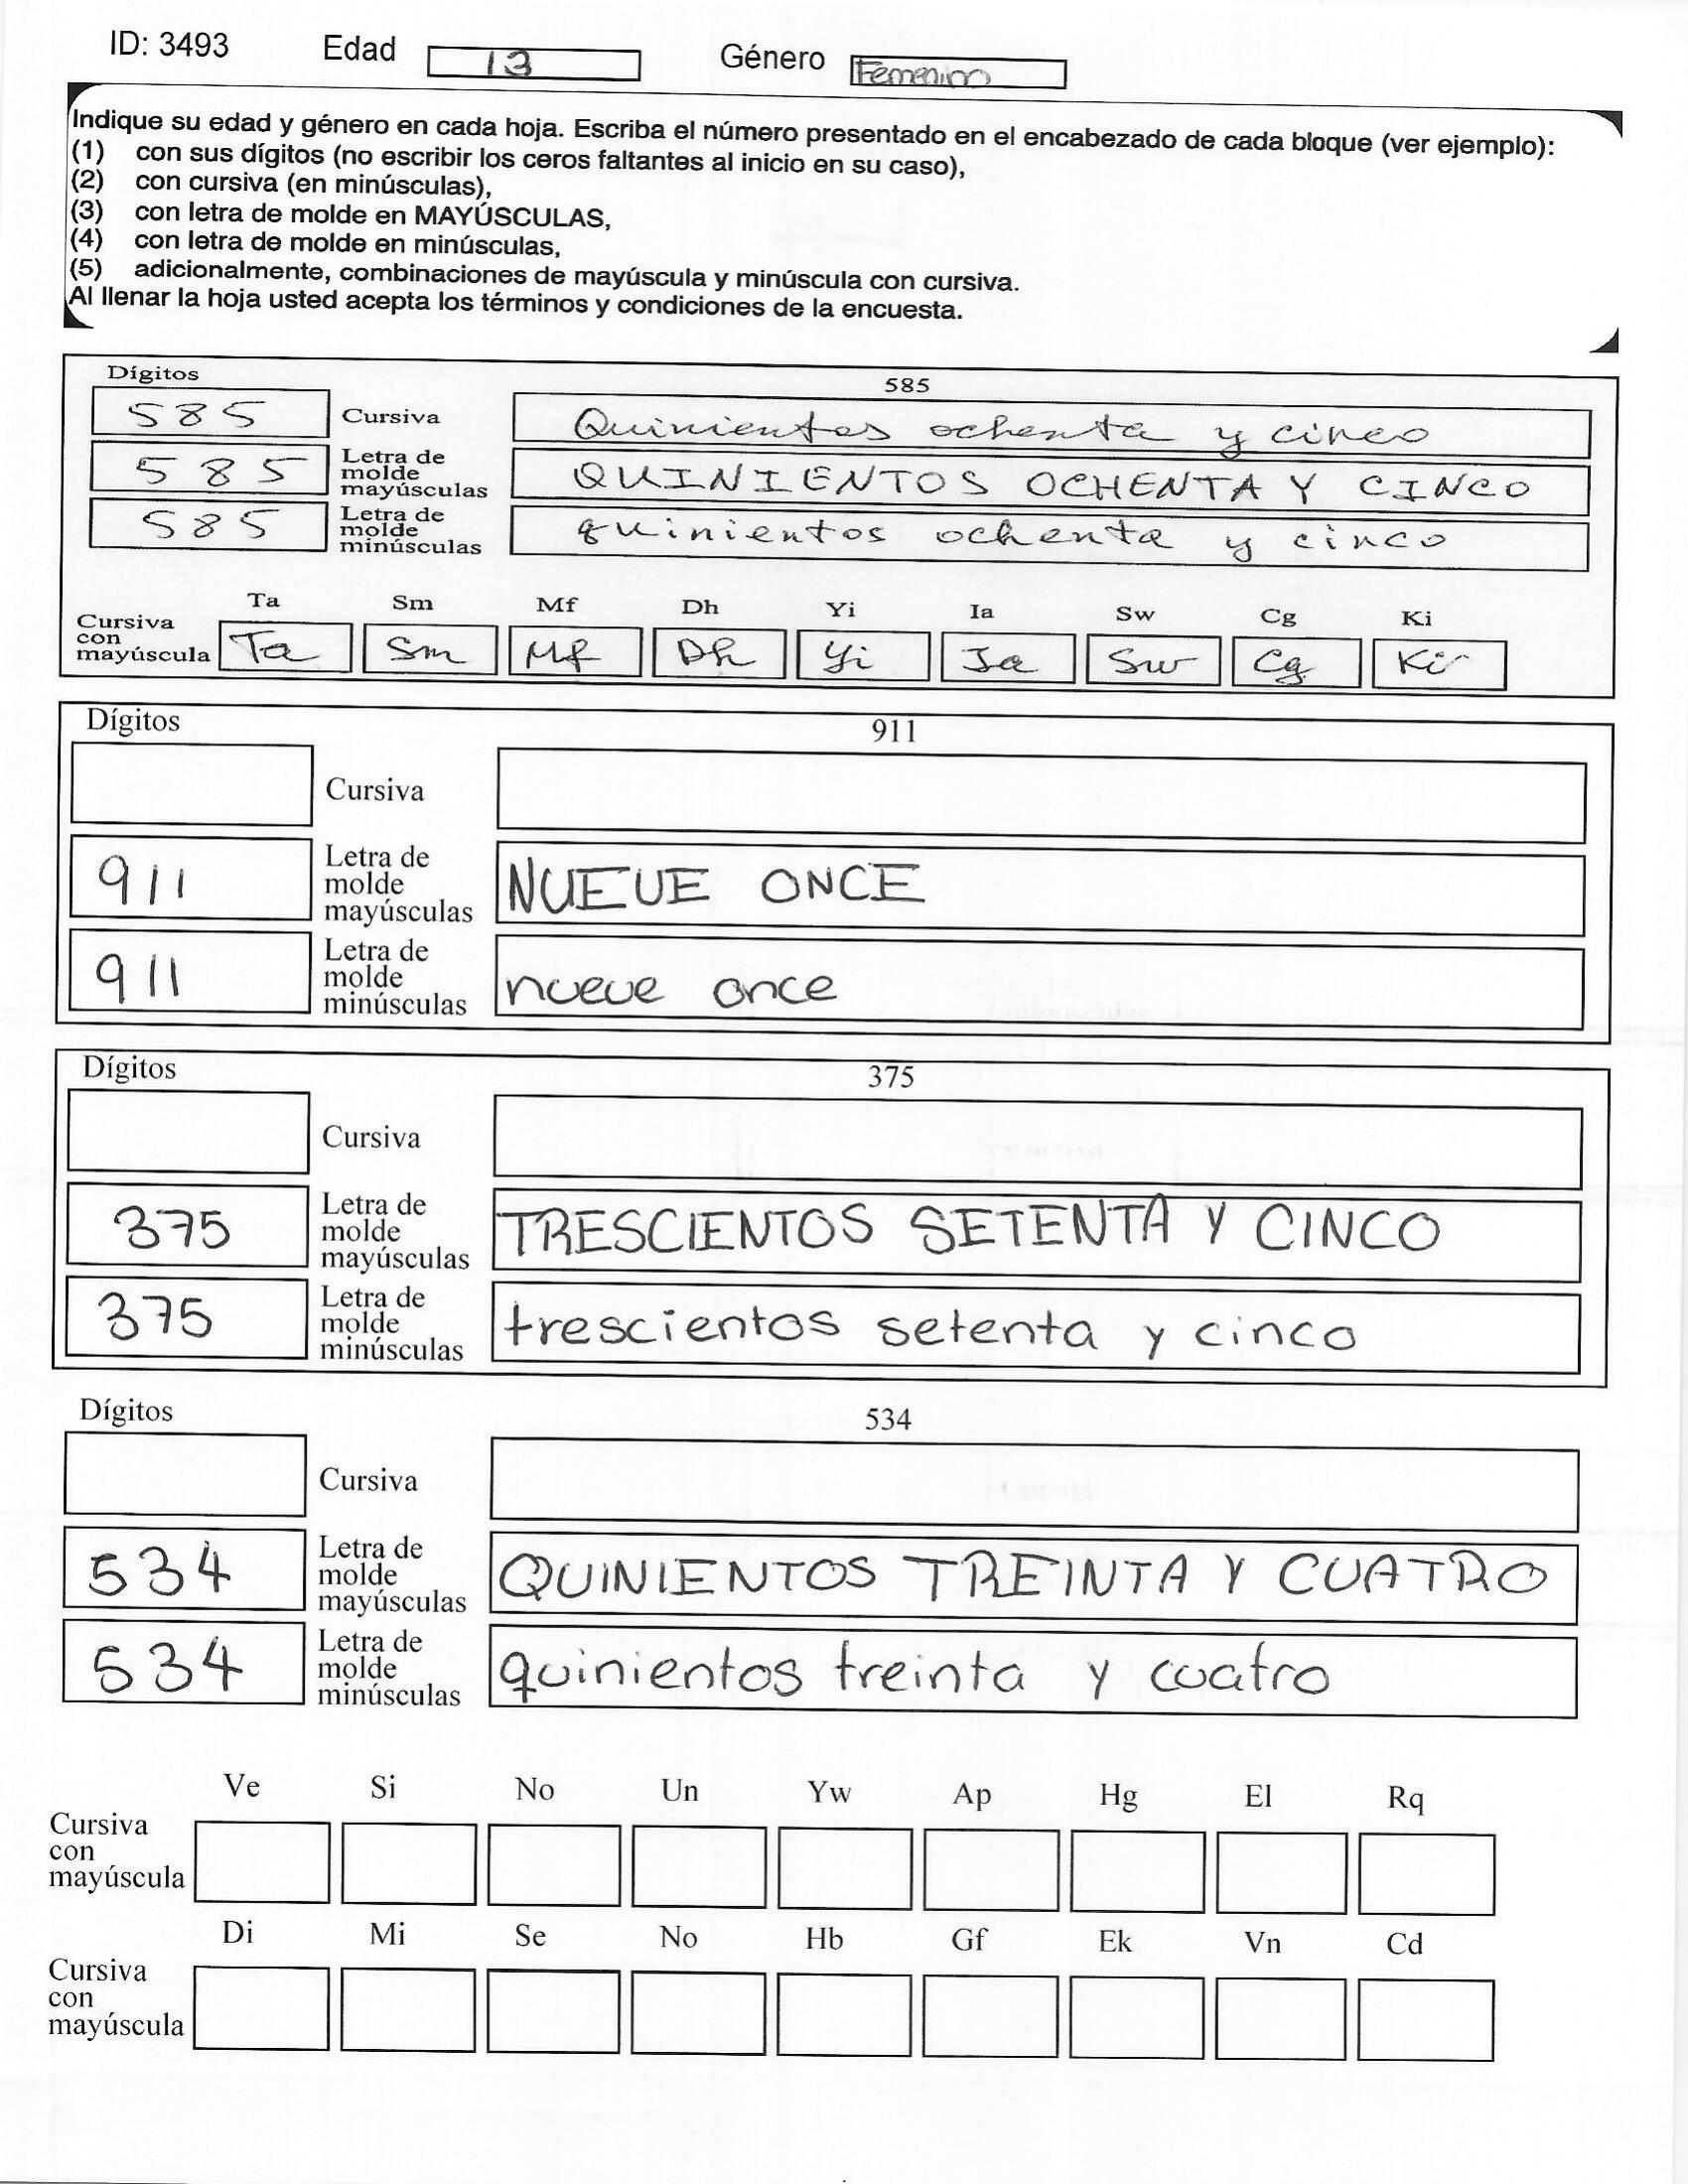 ID: 3493 Edad 13 Género Femenino
Indique su edad y género en cada hoja. Escriba el número presentado en el encabezado de cada bloque (ver ejemplo):
(1) con sus dígitos (no escribir los ceros faltantes al inicio en su caso),
(2) con cursiva (en minúsculas),
(3) con letra de molde en MAYÚSCULAS,
(4) con letra de molde en minúsculas,
(5) adicionalmente, combinaciones de mayúscula y minúscula con cursiva.
Al llenar la hoja usted acepta los términos y condiciones de la encuesta.
Dígitos 585
585 Cursiva Quinientos ochenta y cinco
585 Letra de molde mayúsculas QUINIENTOS OCHENTA Y CINCO
585 Letra de molde minúsculas quinientos ochenta y cinco
Ta Sm Mf Dh Yi Ia Sw Cg Ki
Cursiva con mayúscula Ta Sm Mf Dh Yi Ia Sw Cg Ki
Dígitos 911
Cursiva
911 Letra de molde mayúsculas NUEVE ONCE
911 Letra de molde minúsculas nueve once
Dígitos 375
Cursiva
375 Letra de molde mayúsculas TRESCIENTOS SETENTA Y CINCO
375 Letra de molde minúsculas trescientos setenta y cinco
Dígitos 534
Cursiva
534 Letra de molde mayúsculas QUINIENTOS TREINTA Y CUATRO
534 Letra de molde minúsculas quinientos treinta y cuatro
Ve Si No Un Yw Ap Hg El Rq
Cursiva con mayúscula
Di Mi Se No Hb Gf Ek Vn Cd
Cursiva con mayúscula